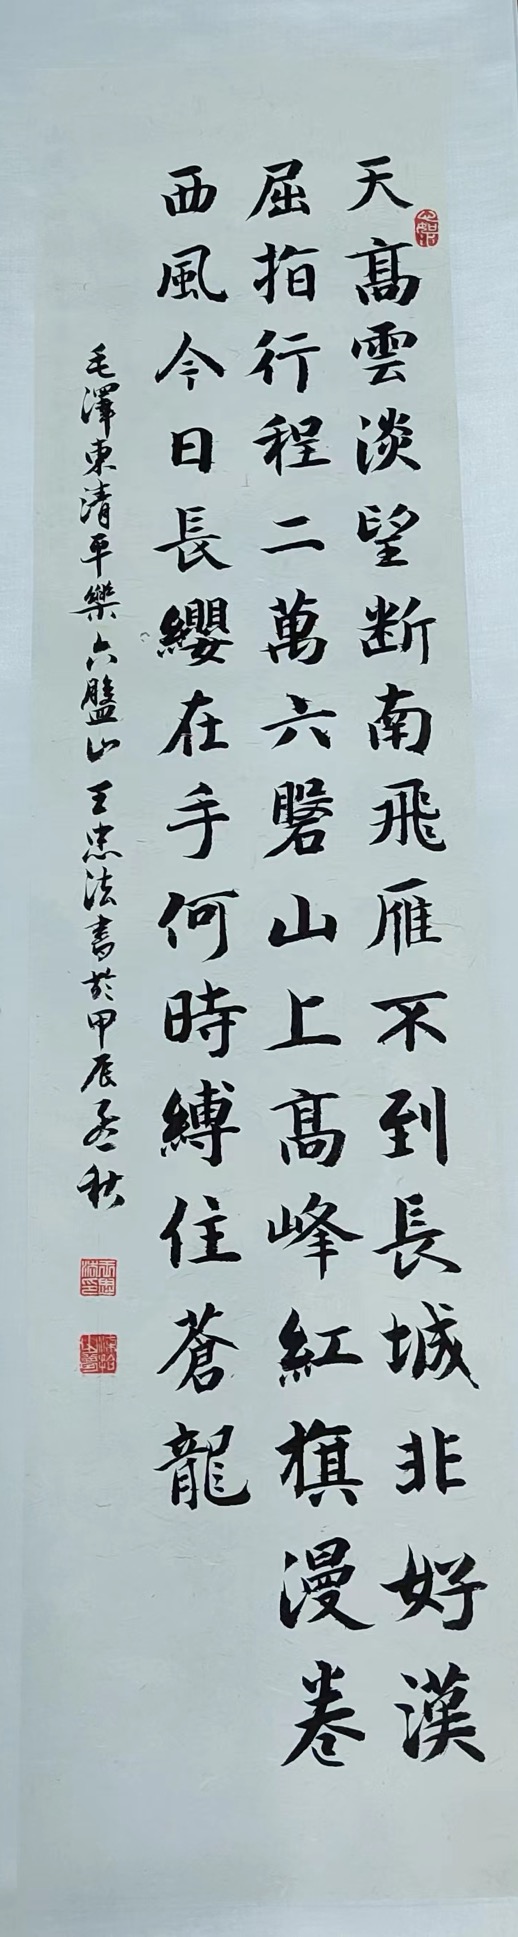 天高雲淡望断南飛雁不到長城非好漢
屈指行程二萬六磐山上高峰紅旗漫卷
西風今日長纓在手何時縛住蒼龍
毛澤東清平樂六盤山王忠法書於甲辰孟秋